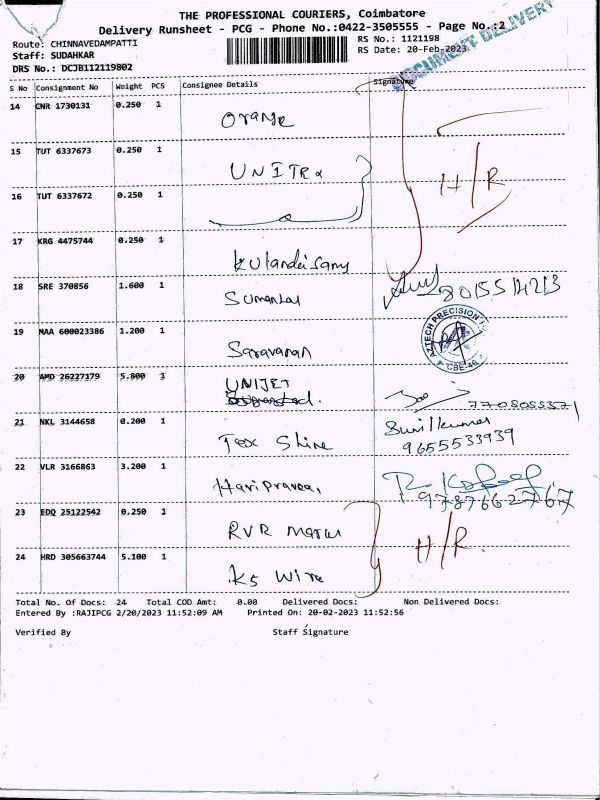 THE PROFESSIONAL COURIERS, Coimbatore
Delivery Runsheet - PCG - Phone No.:0422-3505555 - Page No.:2
Route: CHINNAVEDAMPATTI
RS No.: 1121198
Staff: SUDAHKAR
RS Date: 20-Feb-2023
DRS No.: DCJB112119802
DOCUMENT DELIVERY
S No Consignment No Weight PCS Consignee Details Signature
14 CNR 1730131 0.250 1 Orange
15 TUT 6337673 0.250 1 UNITRA
H/R
16 TUT 6337672 0.250 1
17 KRG 4475744 0.250 1 Kulandaisamy
18 SRE 370856 1.600 1
19 MAA 600023386 1.200 1 Saravanan
AZTECH PRECISION
CBE-40
20 AMD 26227179 5.800 1 UNIJET
7708055371
21 NKL 3144658 0.200 1 Tex Shine Sunilkumar
9655533939
22 VLR 3166863 3.200 1
9787662767
23 EDQ 25122542 0.250 1 RVR
H/R.
24 HRD 305663744 5.100 1 KS Wire
Total No. Of Docs: 24 Total COD Amt: 0.00 Delivered Docs: Non Delivered Docs:
Entered By :RAJIPCG 2/20/2023 11:52:09 AM Printed On: 20-02-2023 11:52:56
Verified By Staff Signature